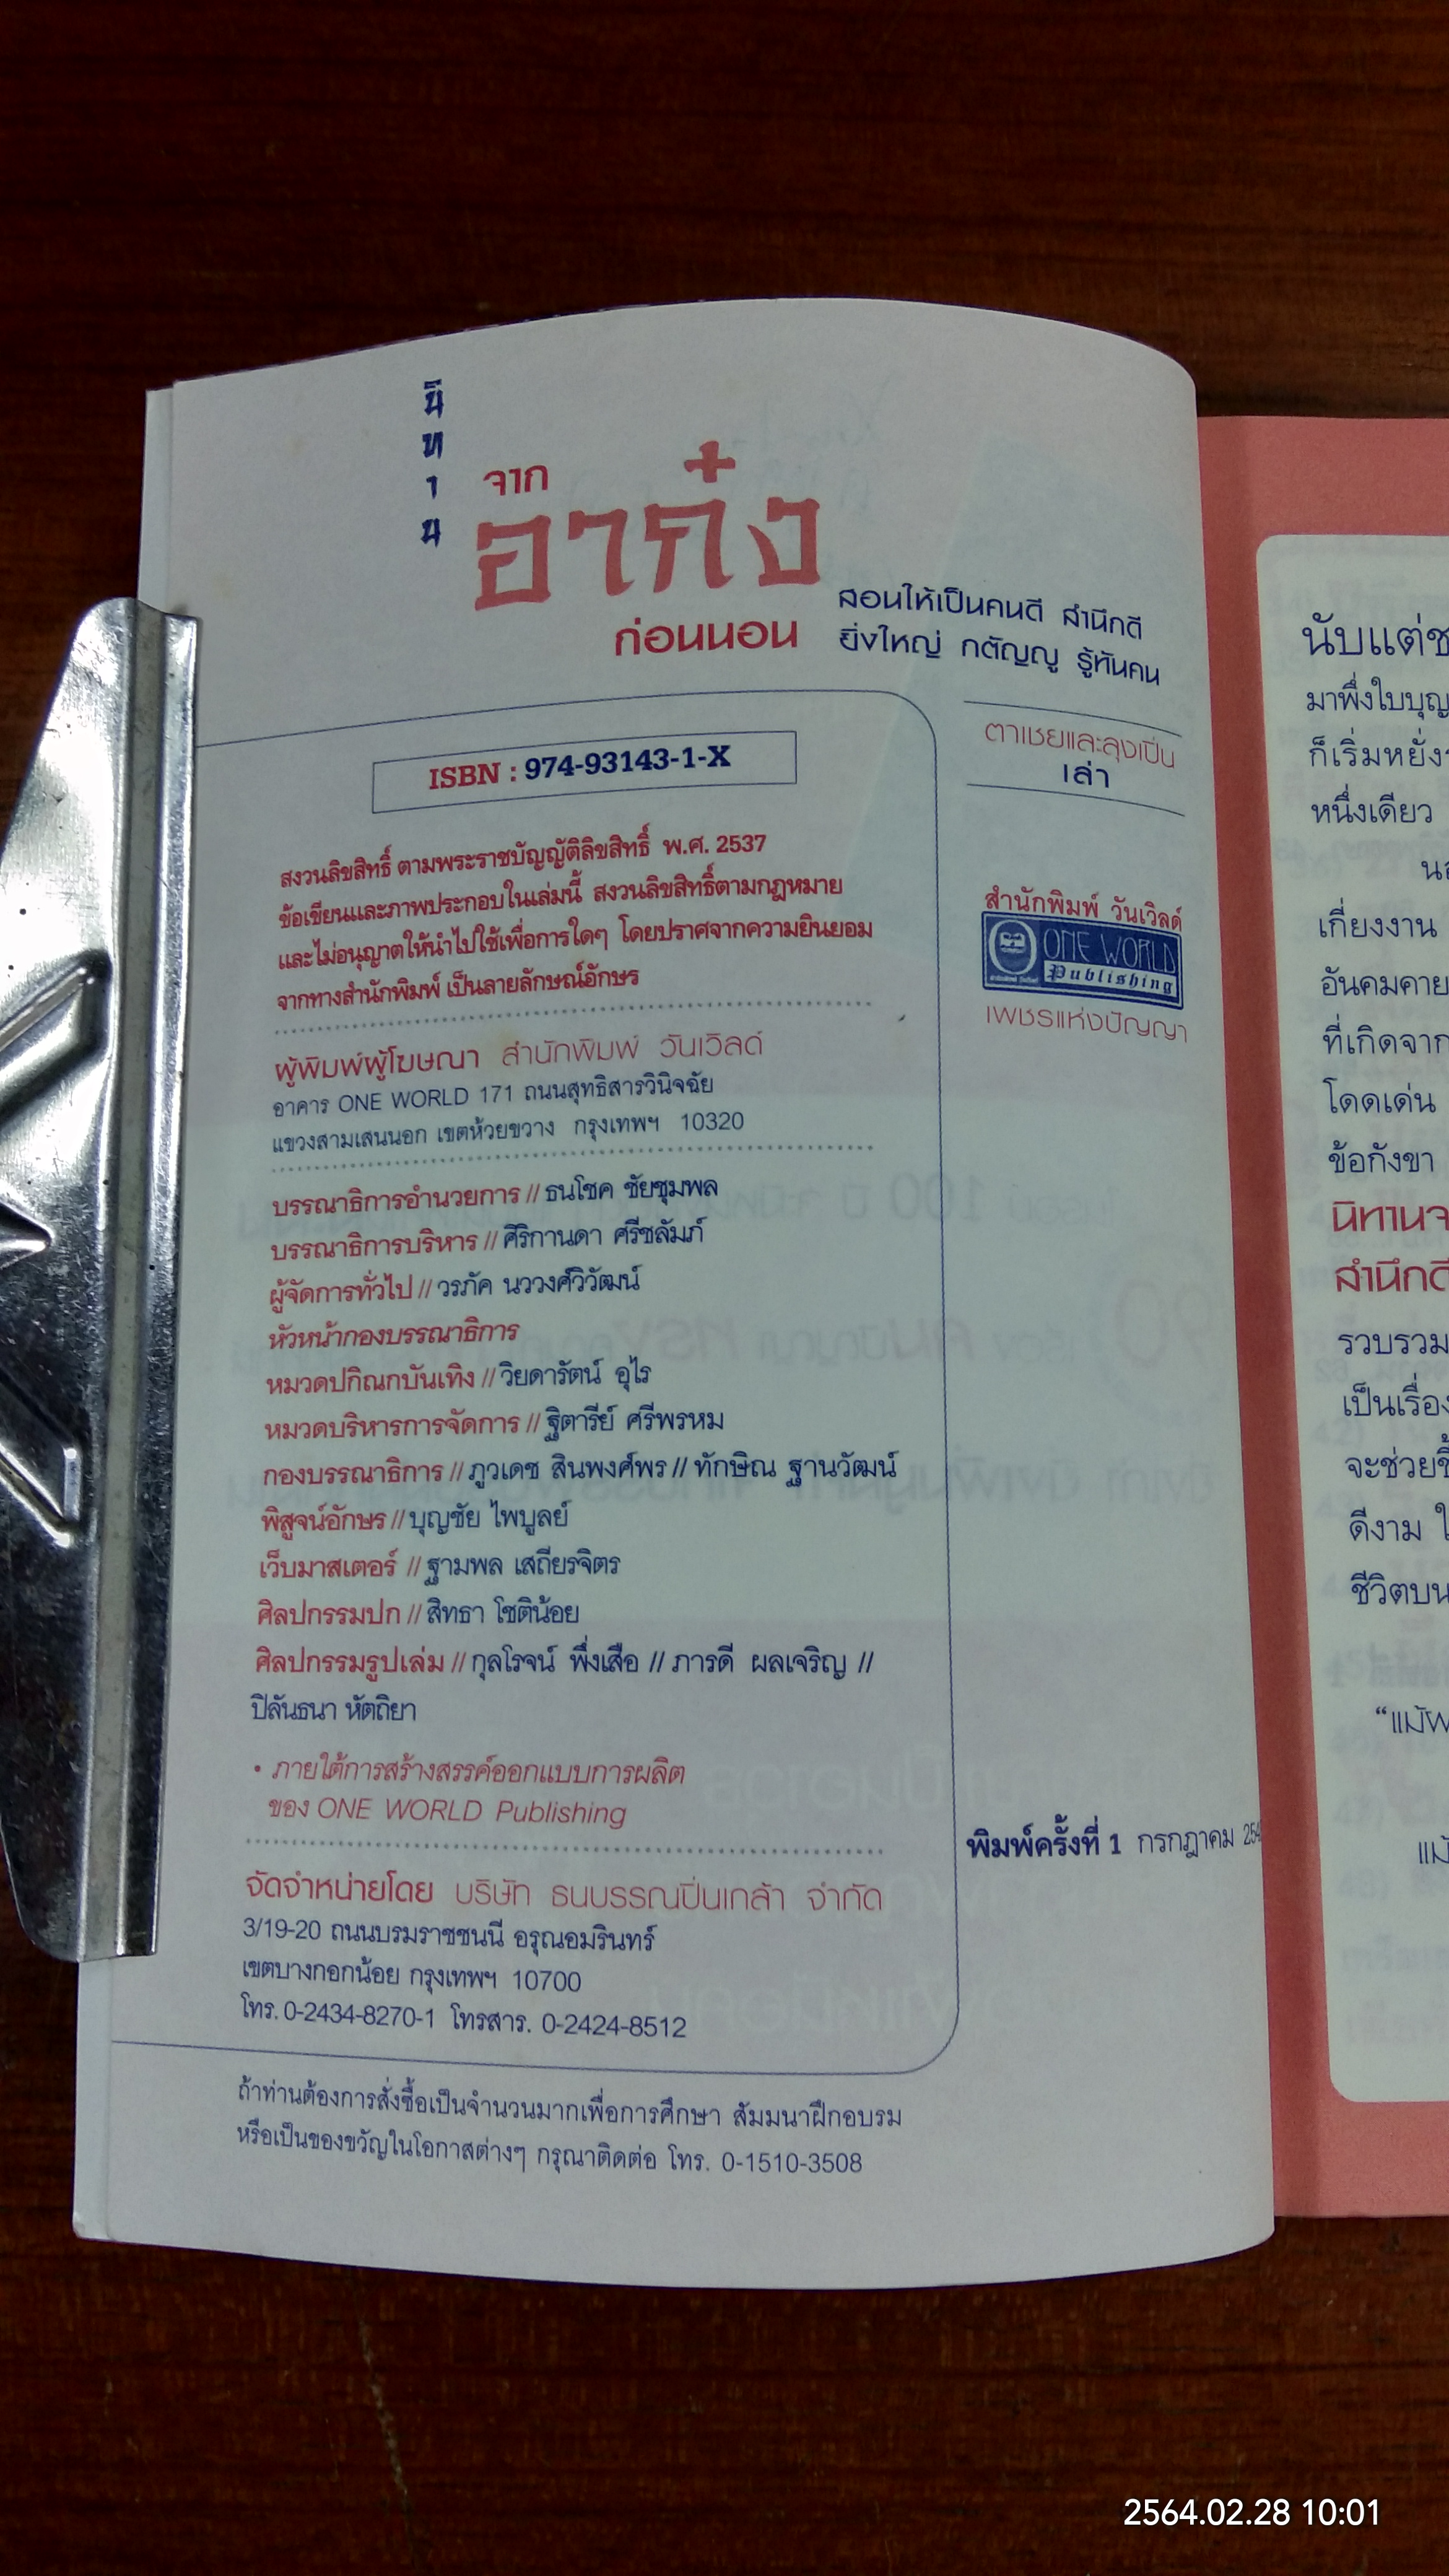 นิทาน
จาก
อาก๋ง
ก่อนนอน
สอนให้เป็นคนดี สำนึกดี
ยิ่งใหญ่ กตัญญู รู้ทันคน
ตาเชยและลุงเป็น
เล่า
ISBN : 974-93143-1-X
สงวนลิขสิทธิ์ ตามพระราชบัญญัติลิขสิทธิ์ พ.ศ. 2537
ข้อเขียนและภาพประกอบในเล่มนี้ สงวนลิขสิทธิ์ตามกฎหมาย
และไม่อนุญาตให้นำไปใช้เพื่อการใดๆ โดยปราศจากความยินยอม
จากทางสำนักพิมพ์ เป็นลายลักษณ์อักษร
สำนักพิมพ์ วันเวิลด์
ONE WORLD
Publishing
เพชรแห่งปัญญา
ผู้พิมพ์ผู้โฆษณา สำนักพิมพ์ วันเวิลด์
อาคาร ONE WORLD 171 ถนนสุทธิสารวินิจฉัย
แขวงสามเสนนอก เขตห้วยขวาง กรุงเทพฯ 10320
บรรณาธิการอำนวยการ // ธนโชค ชัยชุมพล
บรรณาธิการบริหาร // ศิริกานดา ศรีชลัมภ์
ผู้จัดการทั่วไป // วรภัค นววงศ์วิวัฒน์
หัวหน้ากองบรรณาธิการ
หมวดปกิณกบันเทิง // วิยดารัตน์ อุไร
หมวดบริหารการจัดการ // ฐิตารีย์ ศรีพรหม
กองบรรณาธิการ // ภูวเดช สินพงศ์พร // ทักษิณ ฐานวัฒน์
พิสูจน์อักษร // บุญชัย ไพบูลย์
เว็บมาสเตอร์ // ฐามพล เสถียรจิตร
ศิลปกรรมปก // สิทธา โชติน้อย
ศิลปกรรมรูปเล่ม // กุลโรจน์ พึ่งเสือ // ภารดี ผลเจริญ //
ปิลันธนา หัตถิยา
• ภายใต้การสร้างสรรค์ออกแบบการผลิต
ของ ONE WORLD Publishing
พิมพ์ครั้งที่ 1 กรกฎาคม 254
จัดจำหน่ายโดย บริษัท ธนบรรณปิ่นเกล้า จำกัด
3/19-20 ถนนบรมราชชนนี อรุณอมรินทร์
เขตบางกอกน้อย กรุงเทพฯ 10700
โทร. 0-2434-8270-1 โทรสาร. 0-2424-8512
ถ้าท่านต้องการสั่งซื้อเป็นจำนวนมากเพื่อการศึกษา สัมมนาฝึกอบรม
หรือเป็นของขวัญในโอกาสต่างๆ กรุณาติดต่อ โทร. 0-1510-3508
นับแต่ช
มาพึ่งใบบุญ
ก็เริ่มหยั่ง
หนึ่งเดียว
เกี่ยงงาน
อันคมคาย
ที่เกิดจาก
โดดเด่น
ข้อกังขา
นิทานจ
สำนึกดี
รวบรวม
เป็นเรื่อง
จะช่วยชี้
ดีงาม ใ
ชีวิตบน
“แม้ผ
แม้
2564.02.28 10:01